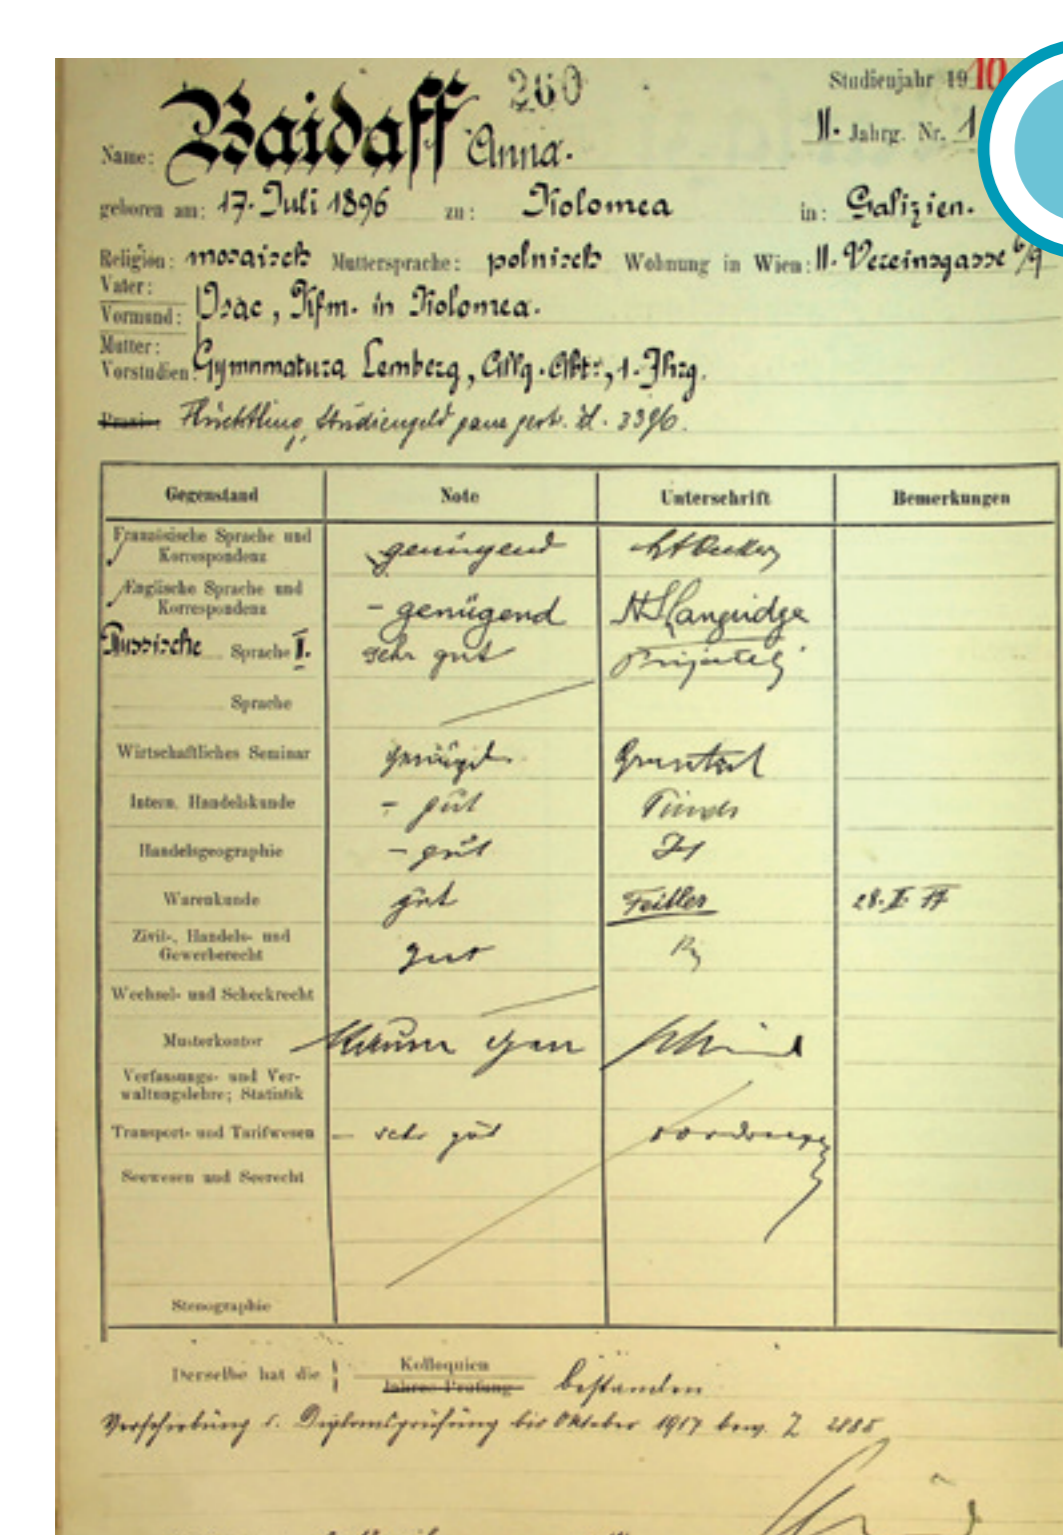 260
Studienjahr 1910
Name: Baidaff Anna.
II. Jahrg. Nr. 1
geboren am: 17. Juli 1896 zu: Kolomea in: Galizien.
Religion: mosaisch Muttersprache: polnisch Wohnung in Wien: II. Vereinsgasse 6/9
Vater:
Vormund: Isac, Kfm. in Kolomea.
Mutter:
Vorstudien: Gymnmatura Lemberg, Allg. Abt:, 1. Jhrg.
Praxis: Flüchtling, Studiengeld ganz gest. Z. 3396.
Gegenstand Note Unterschrift Bemerkungen
Französische Sprache und
Korrespondenz genügend
Englische Sprache und
Korrespondenz - genügend Languidge
Russische Sprache II. sehr gut Prijatelj
Sprache
Wirtschaftliches Seminar genügd. Gruntzel
Intern. Handelskunde - gut
Handelsgeographie - gut
Warenkunde gut Feitler 28. II. 17
Zivil-, Handels- und
Gewerberecht gut
Wechsel- und Scheckrecht
Musterkontor
Verfassungs- und Ver-
waltungslehre; Statistik
Transport- und Tarifwesen - sehr gut
Seewesen und Seerecht
Stenographie
Derselbe hat die Kolloquien
Jahres-Prüfung bestanden
Verschiebung d. Diplomsprüfung bis Oktober 1917 bew. Z 2885